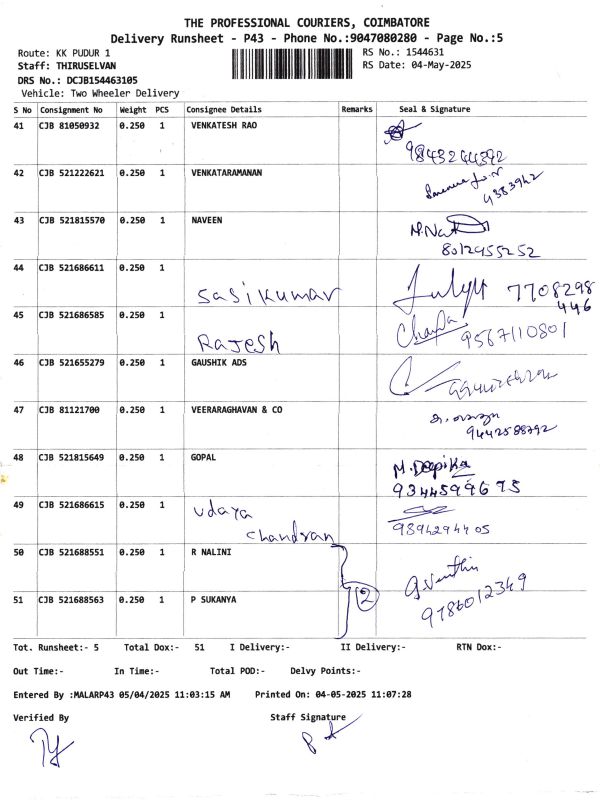 THE PROFESSIONAL COURIERS, COIMBATORE
Delivery Runsheet - P43 - Phone No.:9047080280 - Page No.:5
Route: KK PUDUR 1
RS No.: 1544631
Staff: THIRUSELVAN
RS Date: 04-May-2025
DRS No.: DCJB154463105
Vehicle: Two Wheeler Delivery
S No Consignment No Weight PCS Consignee Details Remarks Seal & Signature
41 CJB 81050932 0.250 1 VENKATESH RAO
9843244392
42 CJB 521222621 0.250 1 VENKATARAMANAN
4383942
43 CJB 521815570 0.250 1 NAVEEN
8012955252
44 CJB 521686611 0.250 1
Sasikumar 7708298
446
45 CJB 521686585 0.250 1
Rajesh 9567110801
46 CJB 521655279 0.250 1 GAUSHIK ADS
47 CJB 81121700 0.250 1 VEERARAGHAVAN & CO
9442588792
48 CJB 521815649 0.250 1 GOPAL
M. Deepika
9344599675
49 CJB 521686615 0.250 1 Udaya
chandran
9894294405
50 CJB 521688551 0.250 1 R NALINI
2
9786012349
51 CJB 521688563 0.250 1 P SUKANYA
Tot. Runsheet:- 5 Total Dox:- 51 I Delivery:- II Delivery:- RTN Dox:-
Out Time:- In Time:- Total POD:- Delvy Points:-
Entered By :MALARP43 05/04/2025 11:03:15 AM Printed On: 04-05-2025 11:07:28
Verified By Staff Signature